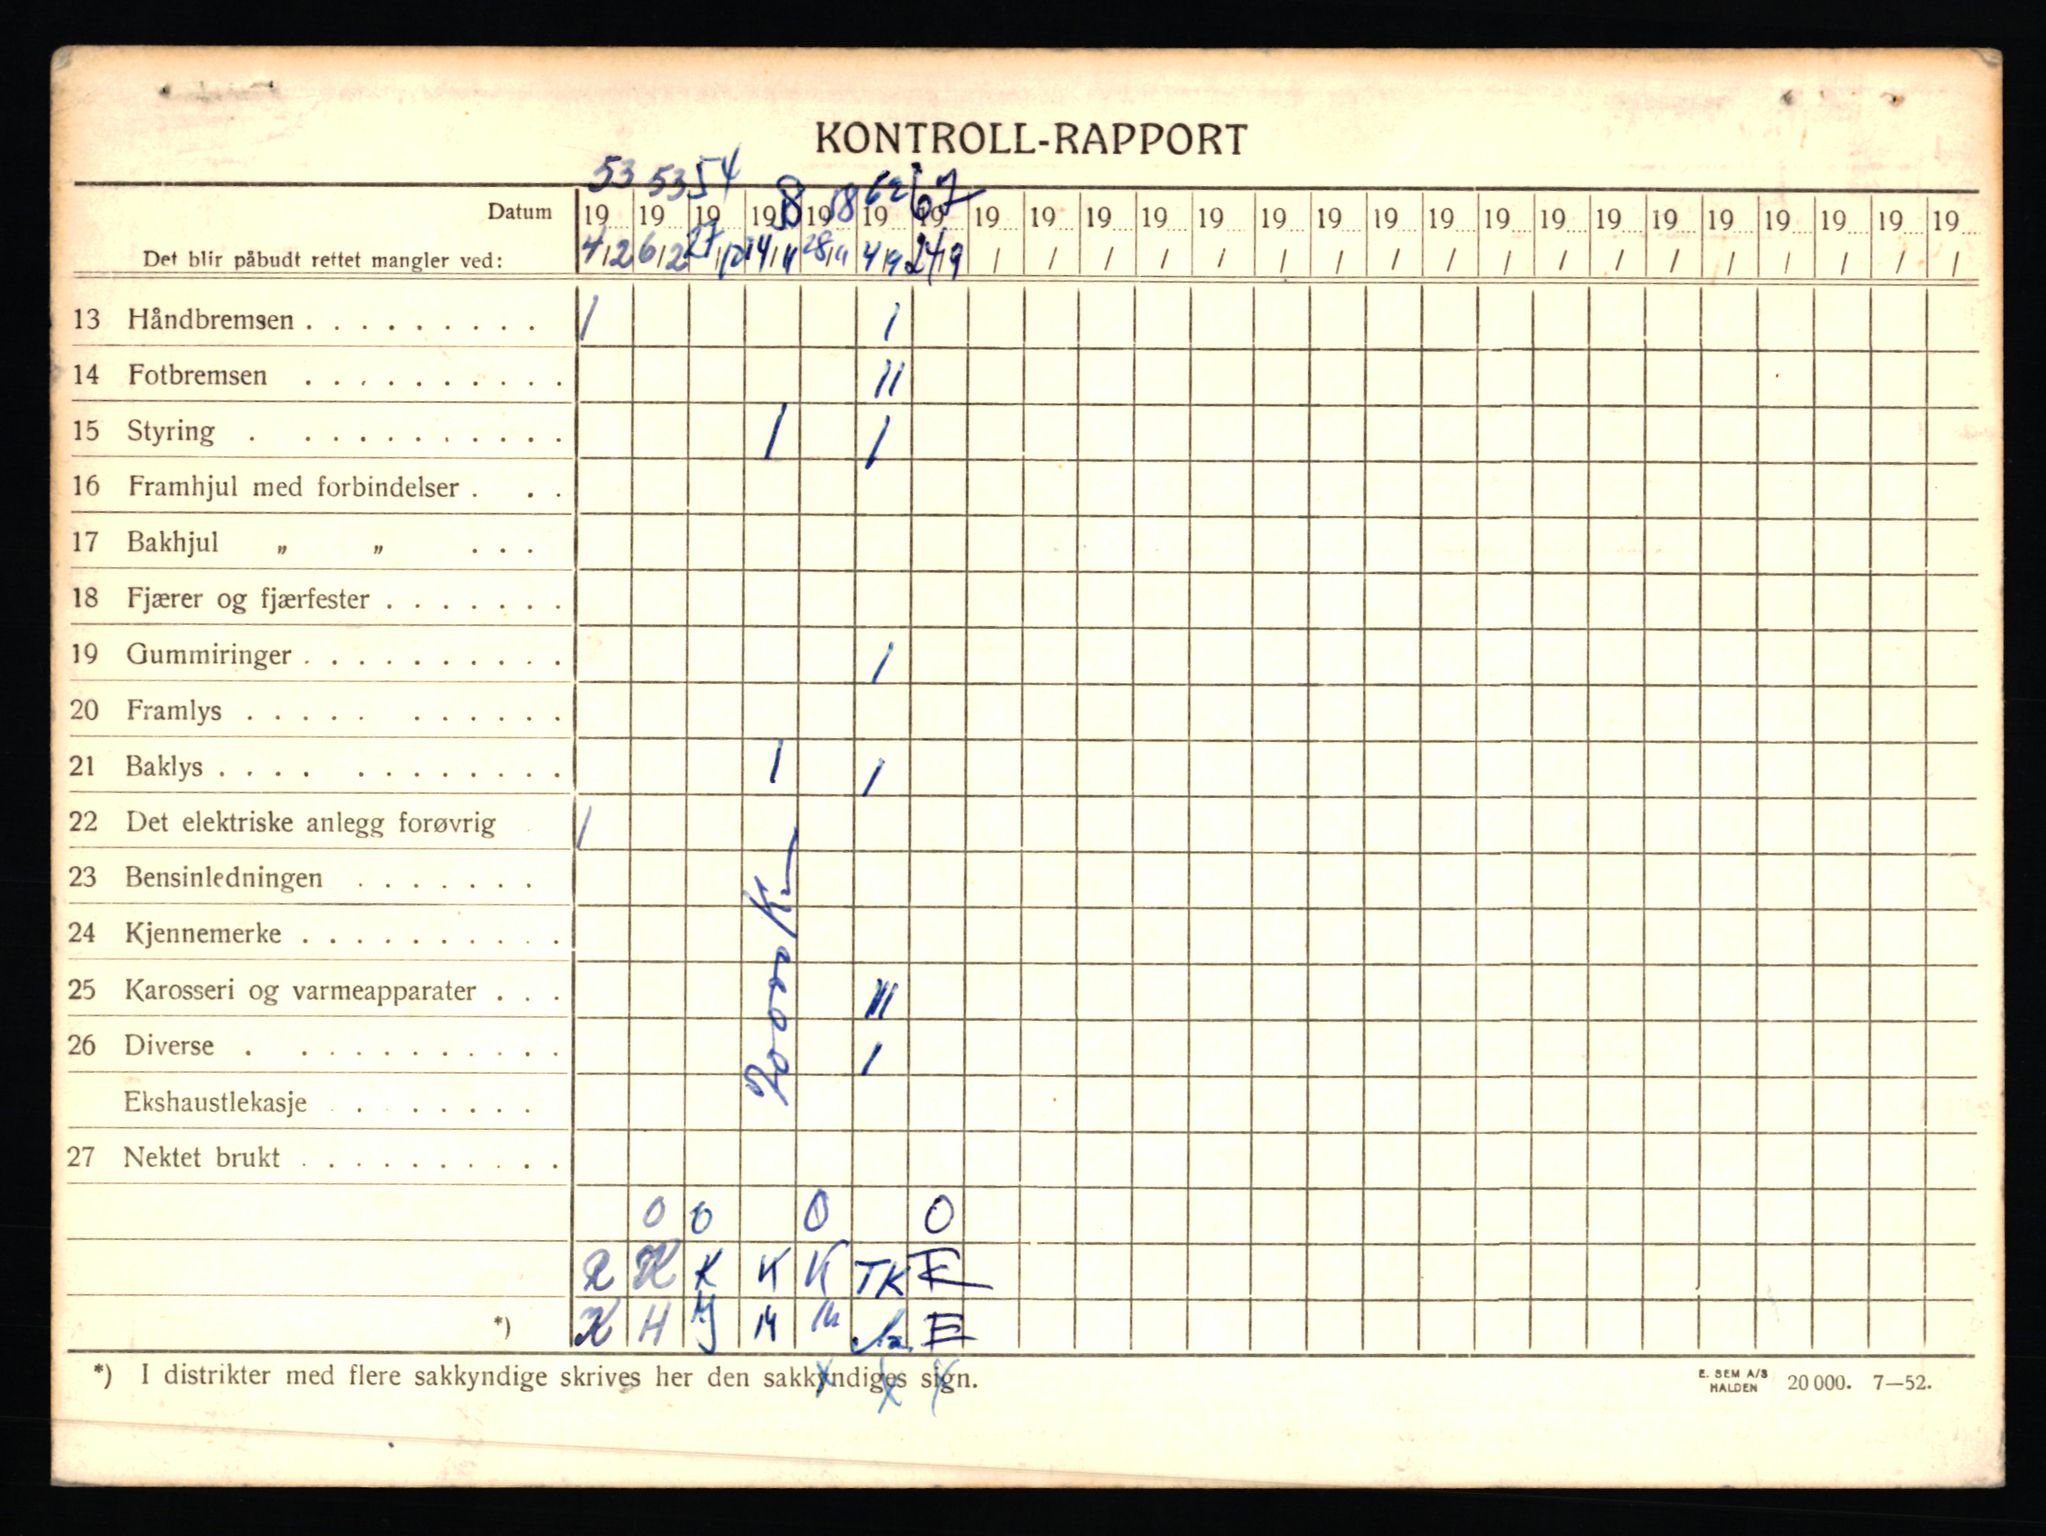 KONTROLL-RAPPORT
53 53 54 58 58 62 67
Datum 19 19 19 19 19 19 19 19 19 19 19 19 19 19 19 19 19 19 19 19 19 19 19 19 19
Det blir påbudt rettet mangler ved: 4/2 6/2 27/12 14/11 28/11 4/9 24/9 / / / / / / / / / / / / / / / / / /
13 Håndbremsen . . . . . . . . . I I
14 Fotbremsen . . . . . . . . . . II
15 Styring . . . . . . . . . . . I I
16 Framhjul med forbindelser . . .
17 Bakhjul „ „ . . .
18 Fjærer og fjærfester . . . . . . .
19 Gummiringer . . . . . . . . . . I
20 Framlys . . . . . . . . . . .
21 Baklys . . . . . . . . . . . . I I
22 Det elektriske anlegg forøvrig I
23 Bensinledningen . . . . . . .
24 Kjennemerke . . . . . . . . . .
25 Karosseri og varmeapparater . . . III
26 Diverse . . . . . . . . . . . I
Ekshaustlekasje . . . . . . .
27 Nektet brukt . . . . . . . . . .
O O O O
R K K K K TK
*) K H M E
*) I distrikter med flere sakkyndige skrives her den sakkyndiges sign.
x x x
E. SEM A/S
HALDEN 20 000. 7—52.